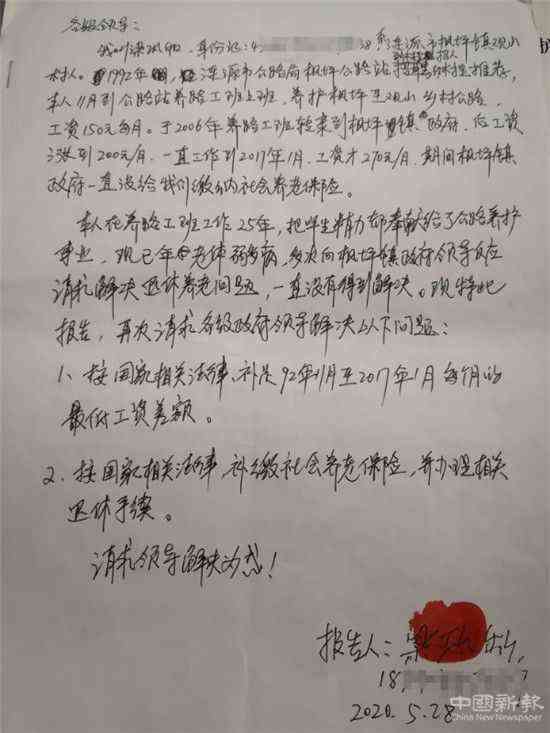 各级领导：
我叫梁 ，身份证：4 38系涟源市枫坪镇观山
村人。1992年，涟源市公路局枫坪公路站招人 担推荐，
本人11月到公路站养路工班上班，养护枫坪至观山乡村公路，
工资150元每月。于2006年养路工班转来到枫坪镇政府，后工资
涨到200元/月，一直工作到2017年1月，工资才270元/月，期间枫坪镇
政府一直没给我们缴纳社会养老保险。
本人在养路工班工作25年，把毕生精力都奉献给了公路养护
事业，现已年老体弱多病，多次向枫坪镇政府领导反应
请求解决退休养老问题，一直没有得到解决。现特此
报告，再次请求各级政府领导解决以下问题：
1、按国家相关法律，补足92年11月至2017年1月每个月的
最低工资差额。
2、按国家相关法律，补缴社会养老保险，并办理相关
退休手续。
请求领导解决为感！
报告人：梁
18
2020.5.28
中國新報
China New Newspaper